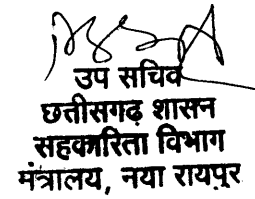 उप सचिव
छत्तीसगढ़ शासन
सहकारिता विभाग
मंत्रालय, नया रायपुर